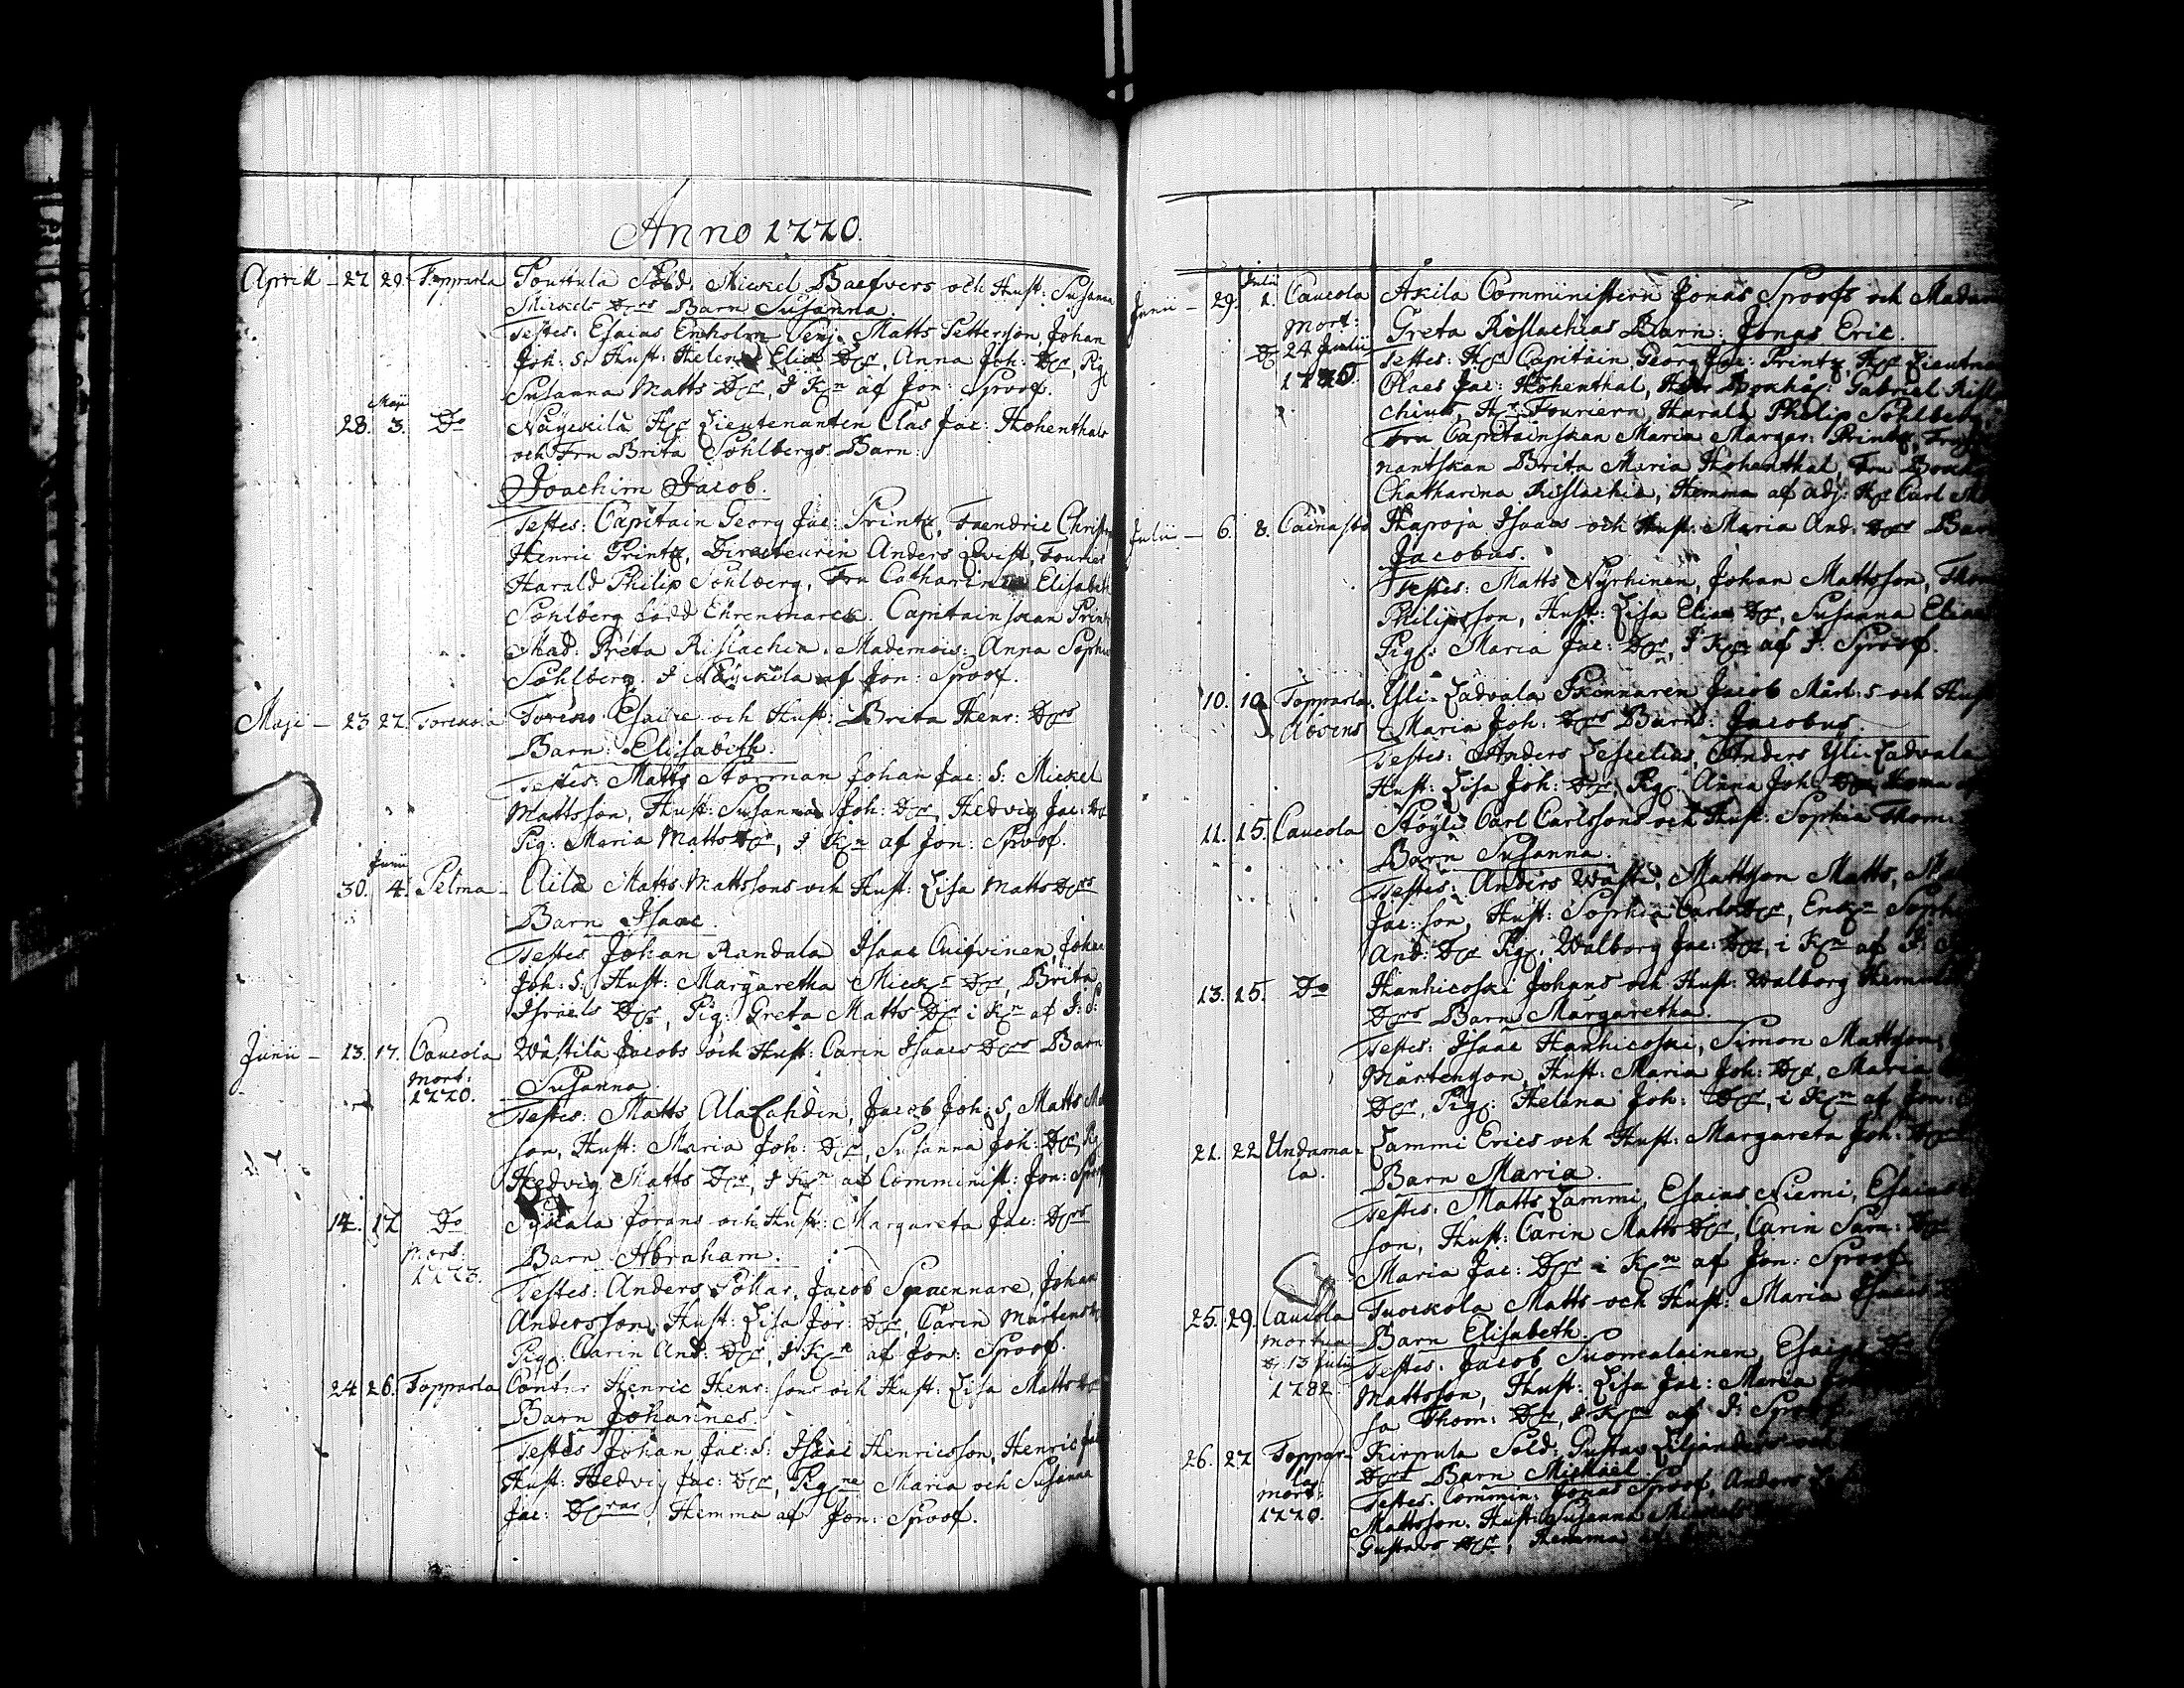 Anno 1770.
Aprill - 27 29. Topparla Pouttula Sold. Mickel Baefvers och Hust: Susanna
Mickels Dtrs Barn Susanna.
Testes: Esaias Enholm Senj. Matts Petterson, Johan
Joh: S. Hust: Helena Eliæ Dtr, Anna Joh: Dtr, Pig:
Susanna Matts Dtr, I Kn af Jon: Sproof.
Maji
28. 3. Do Näyckilä Hr Lieutenanten Clas Jac: Hohenthals
och Fru Brita Sohlbergs Barn:
Joachim Jacob.
Testes: Capitain Georg Jac: Printz, Faendric Christer
Henric Printz, Directeuren Anders Qvist, Fourier
Harald Philip Sohlberg, Fru Catharina Elisabeth
Sohlberg född Ehrenmarck. Capitainskan Printz
Mad: Greta Rislachia. Mademois: Anna Sophia
Sohlberg. I Näyckilä af Jon: Sproof.
Maji - 23 27. Torckola Torcko Esaiæ och Hust: Brita Henr: Dtrs
Barn: Elisabeth.
Testes: Matts Storman Johan Jac: S: Mickel
Mattsson, Hust: Susanna Joh: Dtr, Hedvig Jac: Dtr
Pig: Maria Matts Dtr, I Kn af Jon: Sproof.
Junii
30. 4. Pelma - Aila Matts Mattssons och Hust: Lisa Matts Dtrs
Barn Isaac.
Testes Johan Randala Isaac Cuifvinen, Johan
Joh: S: Hust: Margaretha Mick: Dtr, Brita
Israels Dtr, Pig: Greta Matts Dtr i Kn af J: S:
Junii - 13. 17. Caucola Wästilä Jacobs och Hust: Carin Isaacs Dtrs Barn
mort: 1770. Susanna.
Testes: Matts AlaLahden, Jacob Joh: S, Matts
son, Hust: Maria Joh: Dtr, Susanna Joh: Dtr, Pig
Hedvig Matts Dtr, I Kn af Comminist: Jon: Sproof
14. 17 Do Jörans och Hust: Margareta Jac: Dtrs
mort: 1773. Barn Abraham.
Testes: Anders Pollar, Jacob Spaennare, Johan
Andersson, Hust: Lisa Jör: Dtr, Carin Mårtens
Pig: Carin And: Dtr, I Kn af Jon: Sproof.
24 26. Topparla Contru Henric Henr: sons och Hust: Lisa Matts Dtr
Barn Johannes.
Testes Johan Jac: S: Isaac Henricsson, Henric Jac
Hust: Hedvig Jac: Dtr, Pigne Maria och Susanna
Jac: Dtrar, Hemma af Jon: Sproof.
Julii
Junii - 29. 1. Caucola Akila Comministern Jonas Sproofs och Madam
mort: Greta Rislachias Barn: Jonas Eric.
D. 24 Junii Testes: Hr Capitain Georg Jac: Printz, Hr Lieutnan
Claes Jac: Hohenthal, Herr Gabriel Risla
chius, Hr Fouriern Harald Philip Sohlberg
Fru Capitainskan Maria Margar: Printz, Fru
nantskan Brita Maria Hohenthal, Fru
Chatharina Rislachia, Hemma af adj: Hr Carl
Julii - 6. 8. Cainasto Hapoja Isaacs och Hust: Maria And: Dtrs Barn
Jacobus.
Testes: Matts Nyrhinen, Johan Mattsson, Thom
Philipsson, Hust: Lisa Eliæ Dtr, Susanna Eliæ
Pig: Maria Jac: Dtr, I Kn af J: Sproof.
10. 10 Topparla Yli-Ladvala Skinnaren Jacob Mårt: S och Hust
Aovens Maria Joh: Dtrs Barn: Jacobus
Testes: Anders Anders Yli-Ladvala
Hust: Lisa Joh: Dtr, Pig: Anna Joh: Dtr Hema af
11. 15. Caucola Stöyli Carl Carlssons och Hust: Sophia Thom:
Barn Susanna.
Testes: Anders Wästi, Mattson Matts,
Jac: son, Hust: Sophia Carls Dtr, Enkn Soph
And: Dtr Pig: Walborg Jac: Dtr, i Kn af J:
13. 15. Do Hanhicoski Johans och Hust: Walborg
Dtrs Barn Margaretha.
Testes: Isaac Hanhicoski, Simon Mattson,
Mårtenson, Hust: Maria Joh: Dtr, Maria
Dtr, Pig: Helena Joh: Dtr, i Kn af Jon:
21. 22 Undama- Lammi Erics och Hust: Margareta Joh: Dtrs
la. Barn Maria.
Testes: Matts Lammi, Esaias Niemi, Esaias
son, Hust: Carin Matts Dtr, Carin Sam: Dtr
Maria Jac: Dtr i Kn af Jon: Sproof
25. 29. Caucola Tuockola Matts och Hust: Maria Isaacs
mortua Barn Elisabeth.
D. 13 Julii Testes: Jacob Suomalainen, Esaias
1782 Mattsson, Hust: Lisa Jac: Maria
sa Thom: Dtr, I Kn af J: Sproof
26. 27 Toppar- Kirpula Sold: Gustav
la Dtrs Barn Michael
mort: Testes: Commin: Jonas Sproof, Anders
1770. Mattsson. Hust: Susanna Mickels
Gustavs Dtr, Hemma af